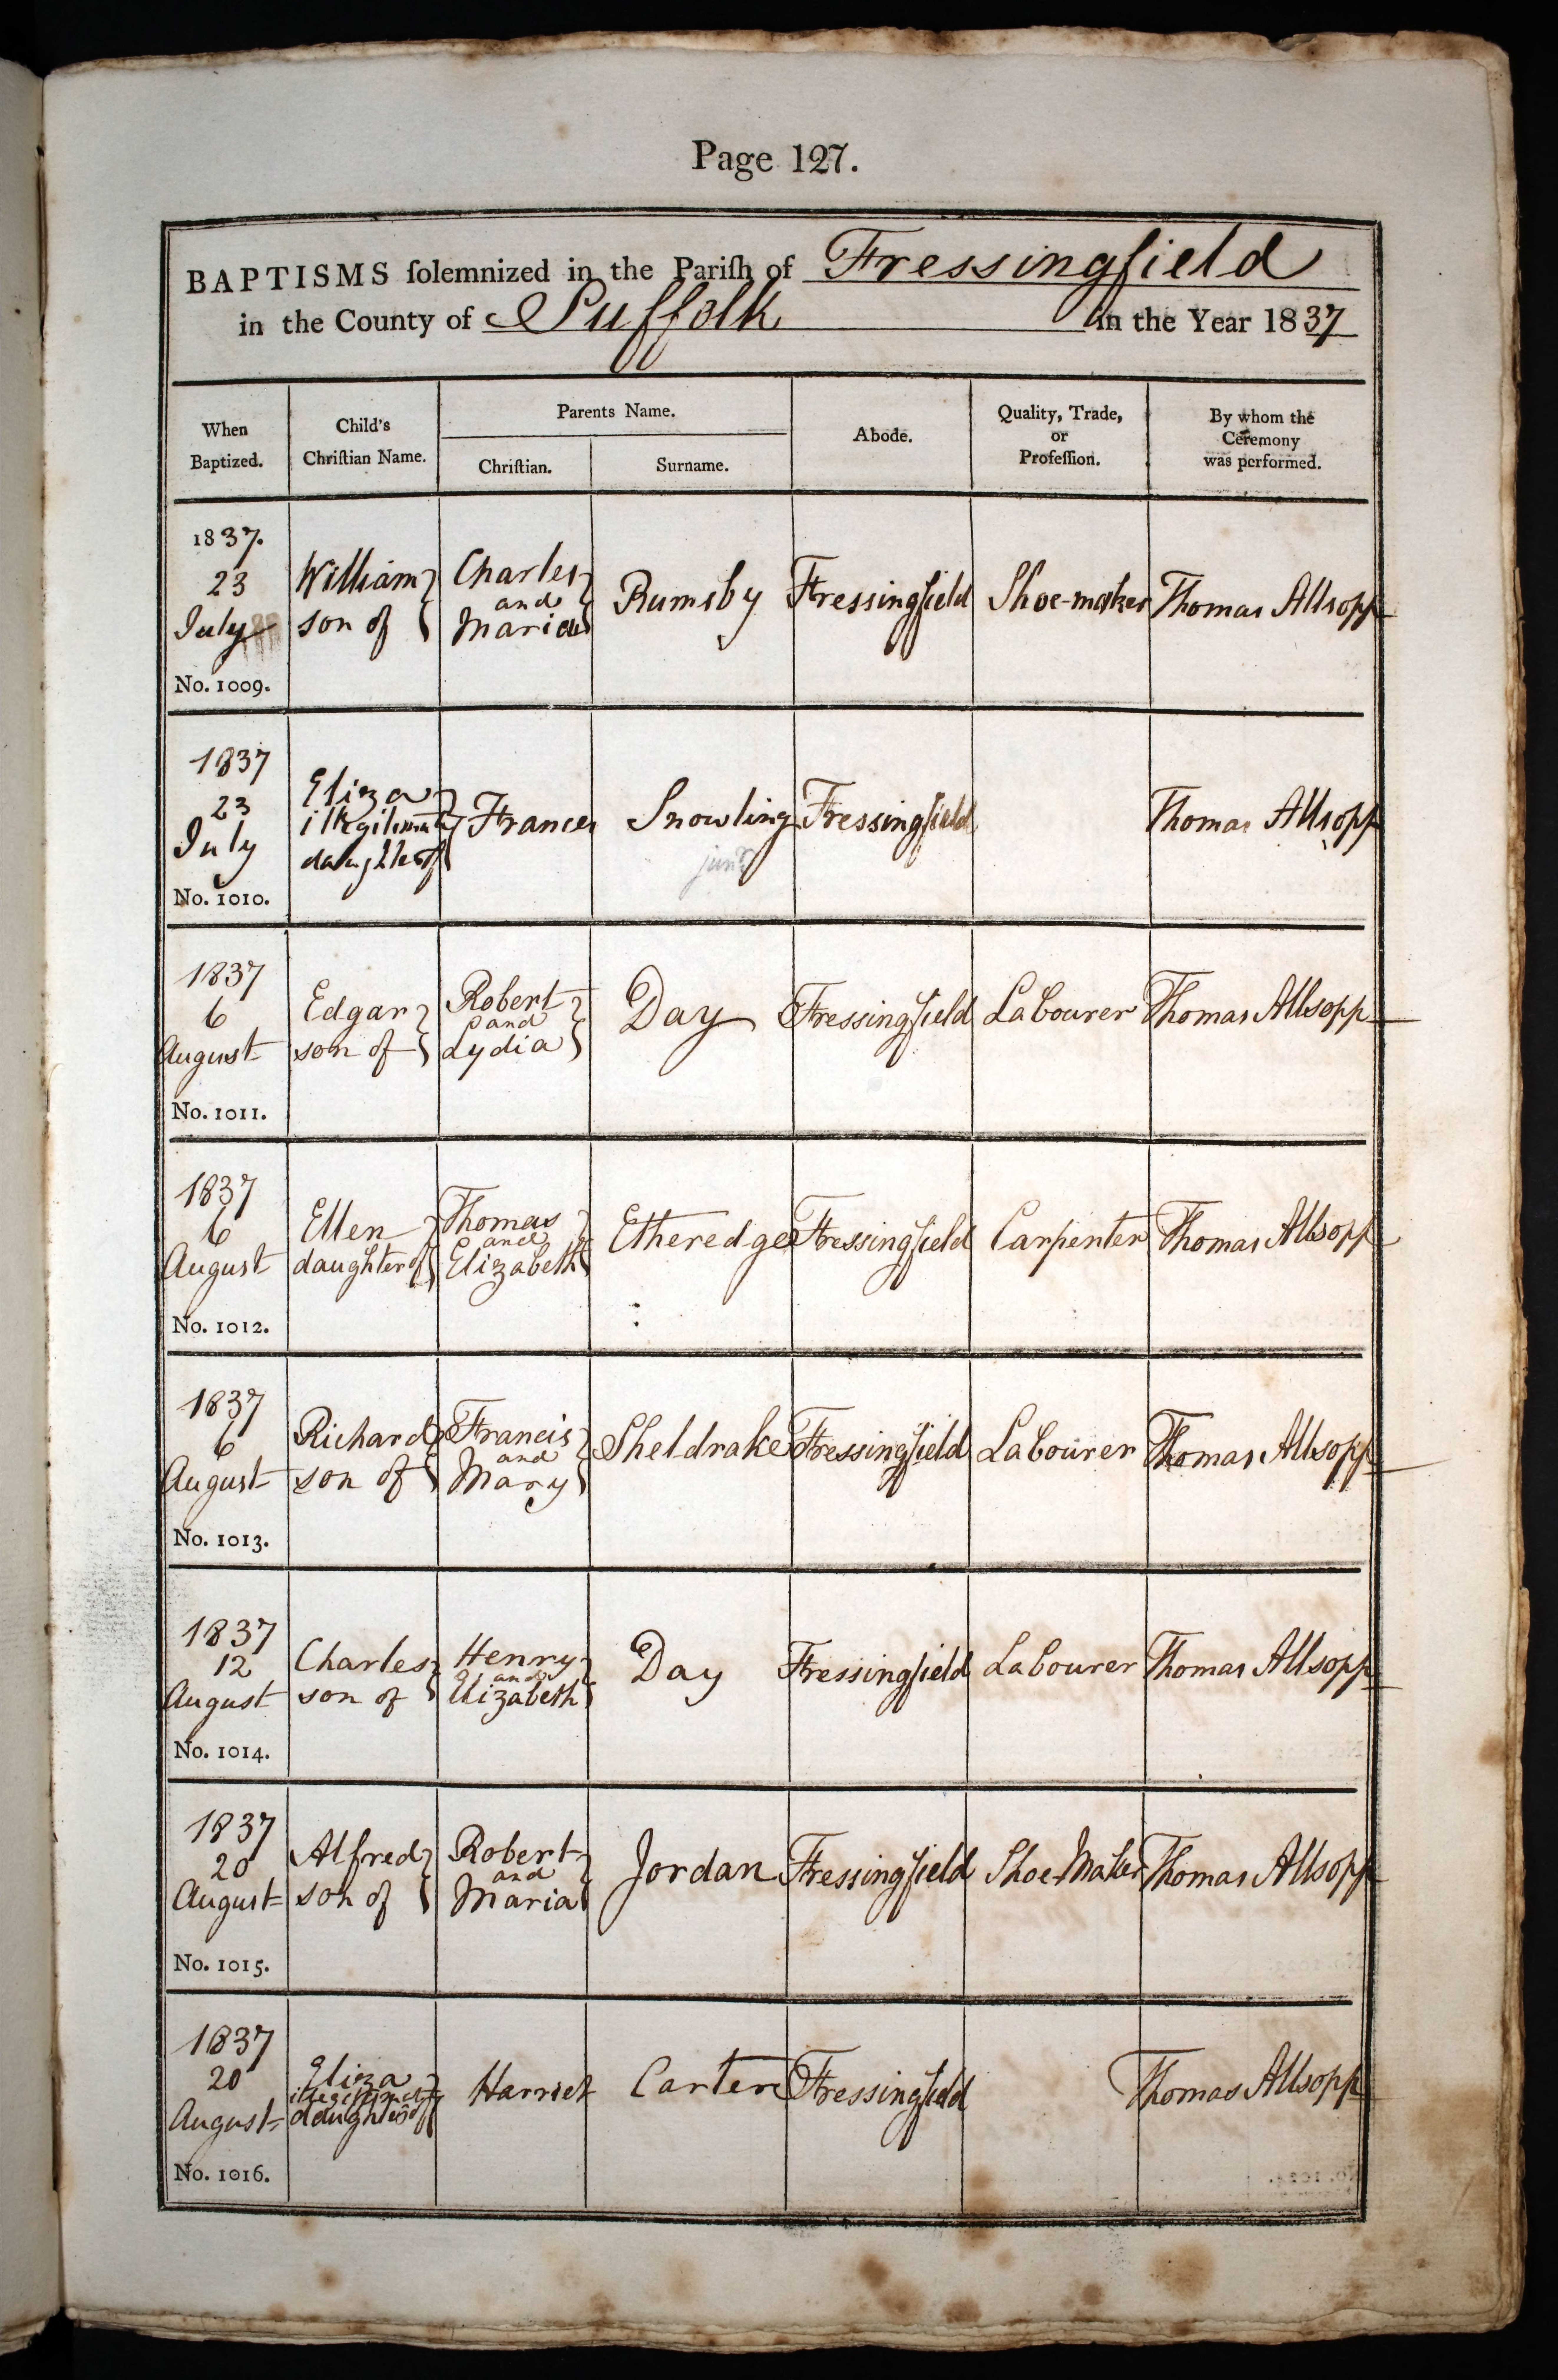 Page 127.
BAPTISMS ſolemnized in the Pariſh of Fressingfield
in the County of Suffolk in the Year 1837
When Baptized.
Child's Chriſtian Name.
Parents Name.
Chriſtian.
Surname.
Abode.
Quality, Trade, or Profeſſion.
By whom the Ceremony was performed.
1837.
23
July
No. 1009.
William
son of
Charles
and
Maria
Rumsby
Fressingfield
Shoe-maker
Thomas Allsopp
1837
23
July
No. 1010.
Eliza
illegitimate
daughter of
Frances
Snowling
junr
Fressingfield
Thomas Allsopp
1837
6
August
No. 1011.
Edgar
son of
Robert
and
Lydia
Day
Fressingfield
Labourer
Thomas Allsopp
1837
6
August
No. 1012.
Ellen
daughter of
Thomas
and
Elizabeth
Etheredge
Fressingfield
Carpenter
Thomas Allsopp
1837
6
August
No. 1013.
Richard
son of
Francis
and
Mary
Sheldrake
Fressingfield
Labourer
Thomas Allsopp
1837
12
August
No. 1014.
Charles
son of
Henry
and
Elizabeth
Day
Fressingfield
Labourer
Thomas Allsopp
1837
20
August
No. 1015.
Alfred
son of
Robert
and
Maria
Jordan
Fressingfield
Shoe-Maker
Thomas Allsopp
1837
20
August
No. 1016.
Eliza
illegitimate
daughter of
Harriet
Carter
Fressingfield
Thomas Allsopp